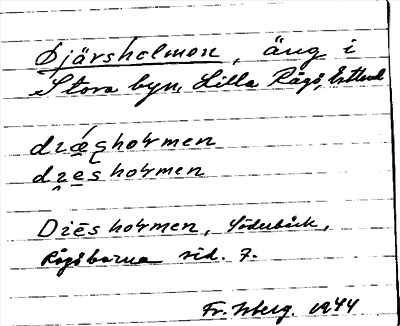 Djärsholmen, äng i
Stora byn, Lilla Rågö, Estland
dzǽsholmen
dzēsholmen
Dzēsholmen, Söderbäck,
Rågöbarna sid. 7.
Fr. Isberg. 1944